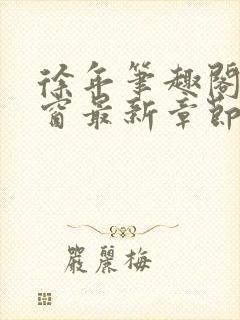 徐年筆趣閣
窗最新章節
嚴麗梅